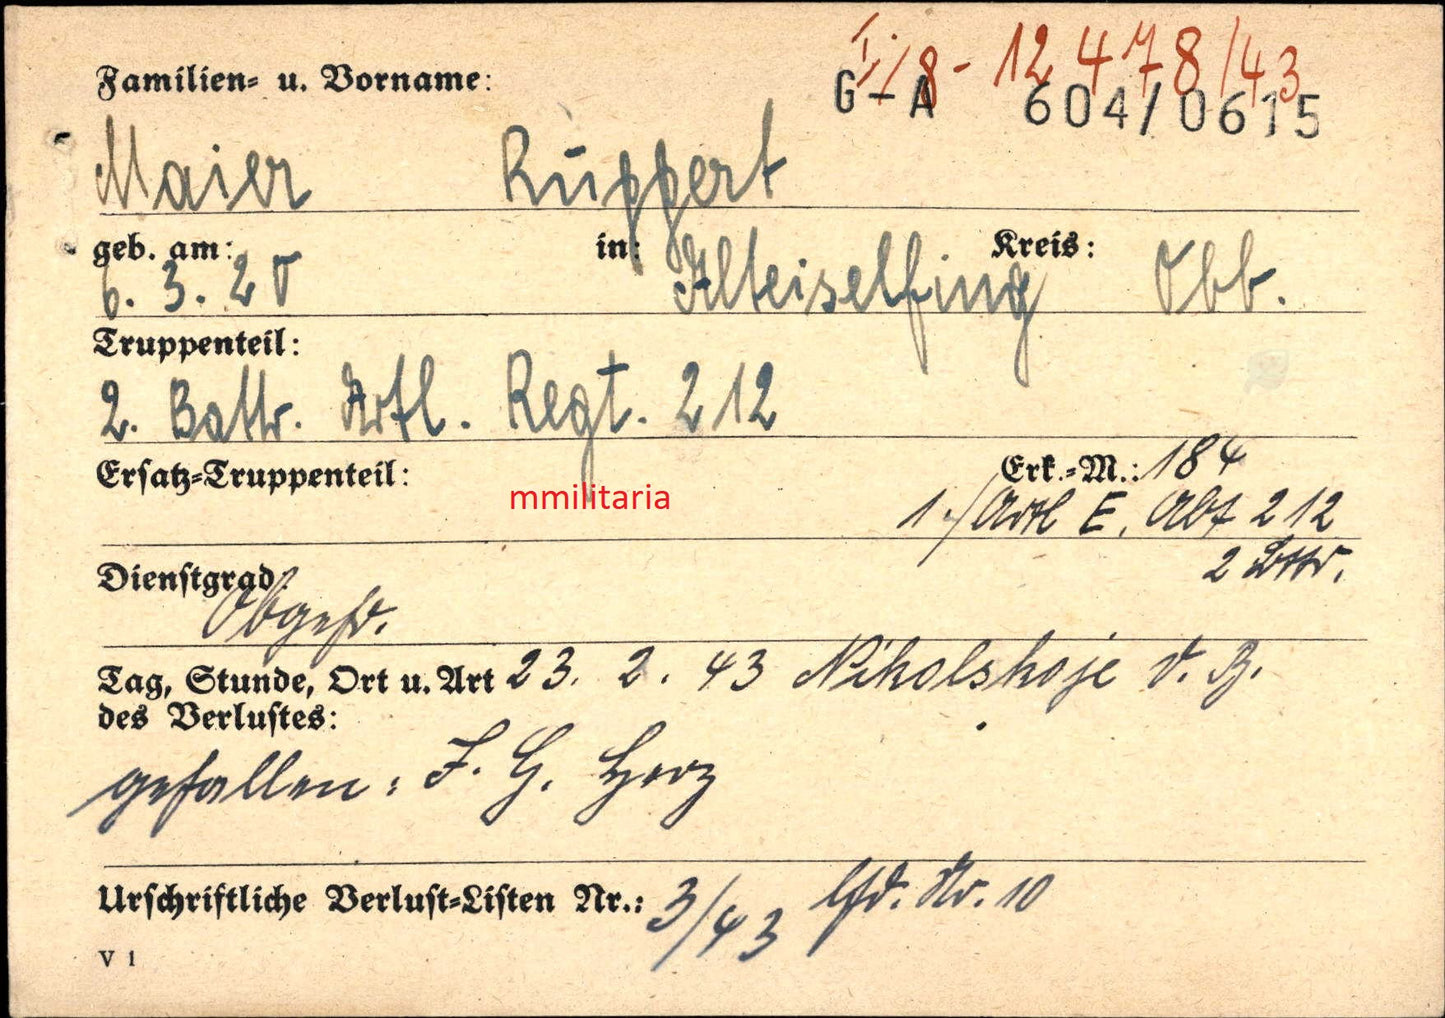 I/8 - 12478/43
Familien- u. Vorname:
G - A 604/0615
Maier Ruppert
geb. am: in: Kreis:
6. 3. 20 Alteiselfing Obb.
Truppenteil:
2. Battr. Artl. Regt. 212
Ersatz-Truppenteil: Erk.-M.: 184
mmilitaria
1./Artl E. Abt 212
2 Bttr.
Dienstgrad:
Obgefr.
Tag, Stunde, Ort u. Art 23. 2. 43 Nikolskoje
des Verlustes:
gefallen: I. G. Herz
Urschriftliche Verlust-Listen Nr.: 3/43 lfd. Nr. 10
V 1